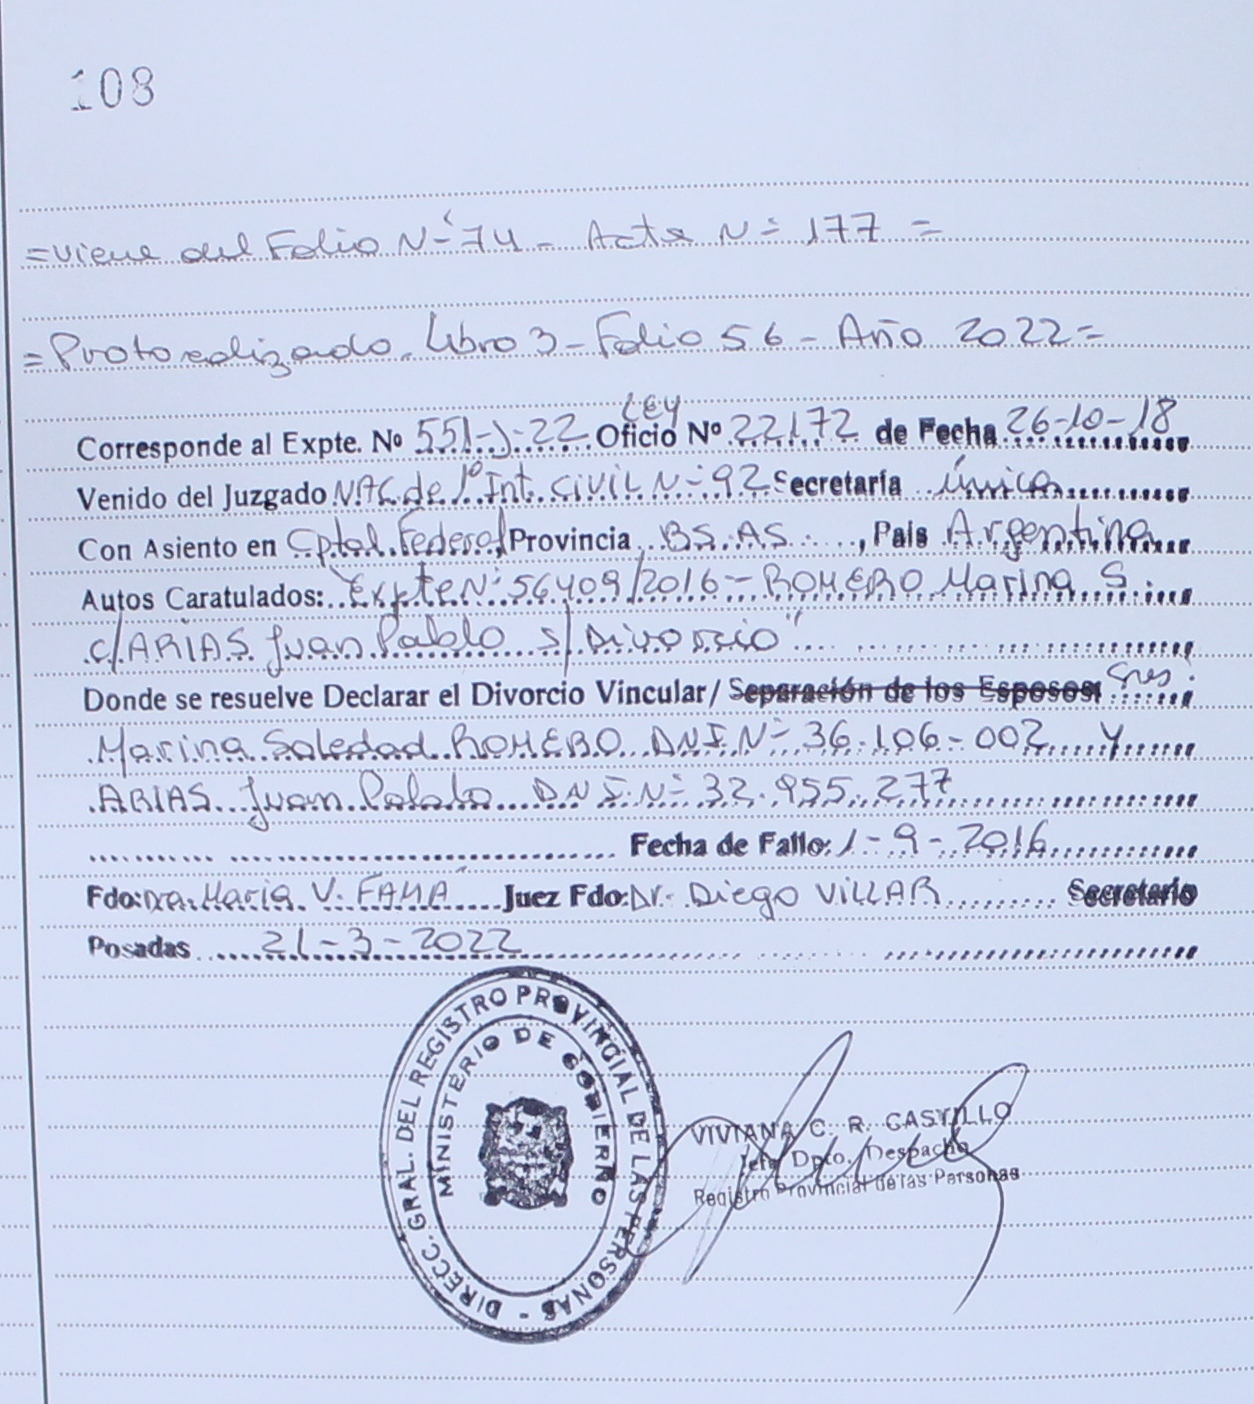 108
=Viene del Folio Nº 74 - Acta Nº 177 =
=Protocolizado. Libro 3 - Folio 56 - Año 2022=
LEY
Corresponde al Expte. Nº 551-J-22 Oficio Nº 22172 de Fecha 26-10-18
Venido del Juzgado NAC de 1º Int. CiVIL Nº 92 Secretaría única
Con Asiento en Cptal Federal Provincia BS.AS. , País Argentina
Autos Caratulados: "Expte Nº 56409/2016 - ROMERO Marina S.
c/ARIAS Juan Pablo s/Divorcio"
Donde se resuelve Declarar el Divorcio Vincular/ Separación de los Esposos: Sres:
Marina Soledad ROMERO DNI.Nº 36.106-002 y
ARIAS Juan Pablo DNI.Nº 32.955.277
Fecha de Fallo: 1-9-2016
Fdo: Dra. María V. FAMÁ Juez Fdo: Dr. Diego ViLLAR Secretario
Posadas 21-3-2022
DIRECC. GRAL. DEL REGISTRO PROVINCIAL DE LAS PERSONAS -
MINISTERIO DE GOBIERNO
VIVIANA C. R. CASTILLO
Jefe Dpto. Despacho
Registro Provincial de las Personas